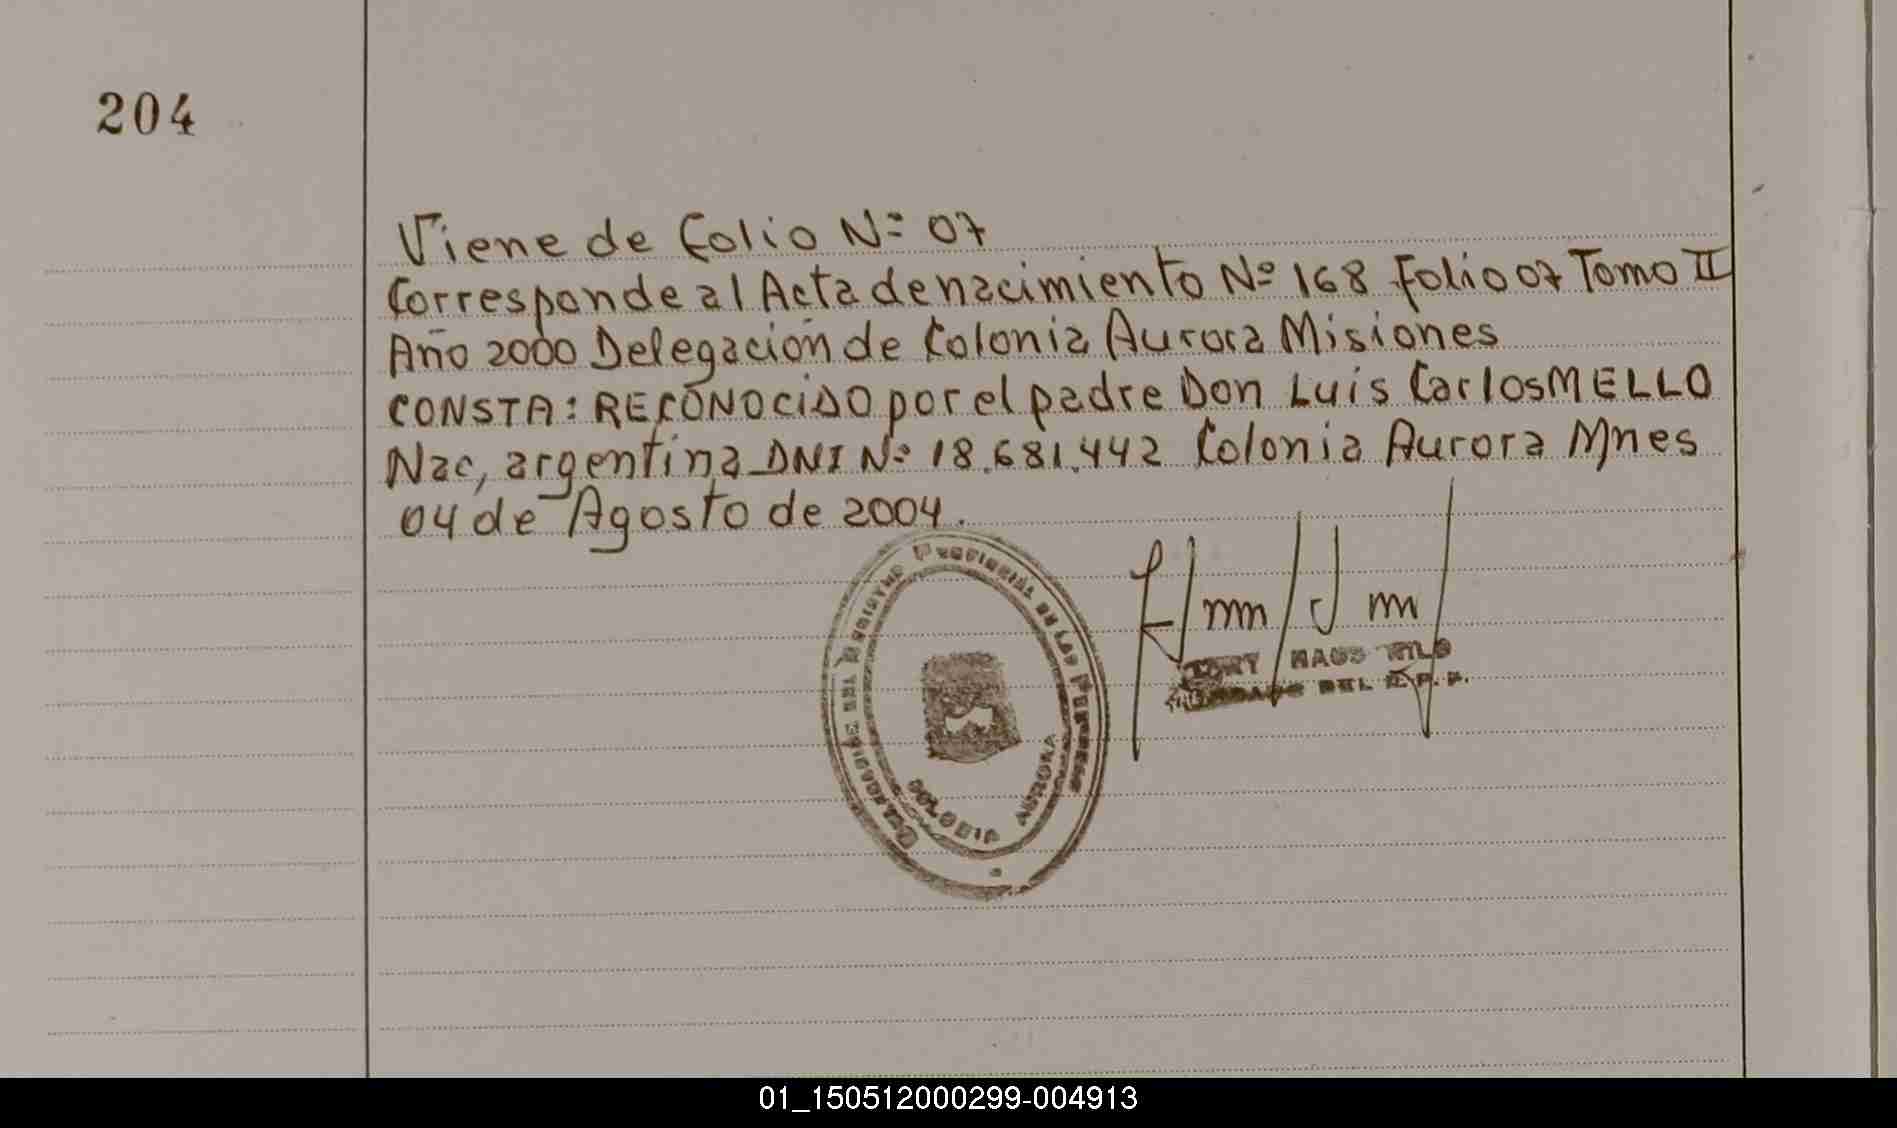 204
Viene de Folio Nº 07
Corresponde al Acta de nacimiento Nº 168 Folio 07 Tomo II
Año 2000 Delegación de Colonia Aurora Misiones
CONSTA: RECONOCIDO por el padre Don Luis Carlos MELLO
Nac, argentina DNI Nº 18.681.442 Colonia Aurora Mnes
04 de Agosto de 2004.
REGISTRO PROVINCIAL DE LAS PERSONAS
COLONIA AURORA
DEL R.P.P.
01_150512000299-004913